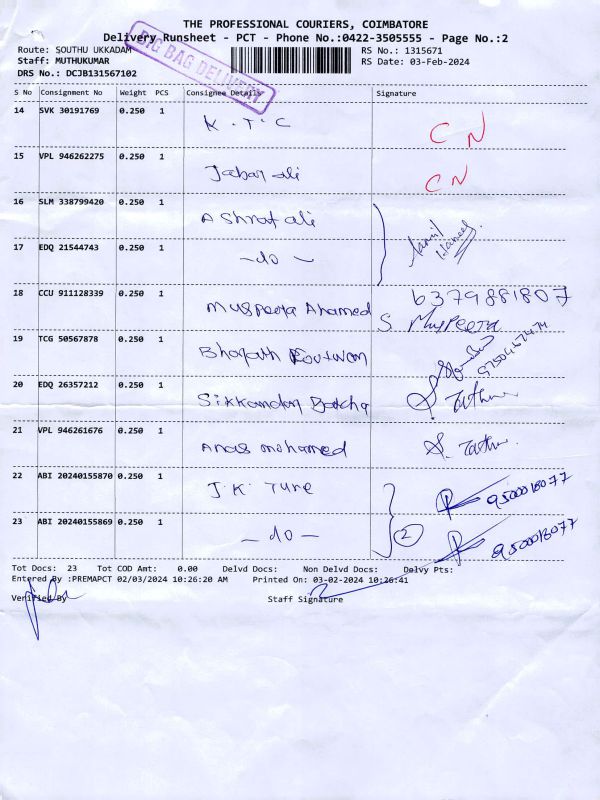 THE PROFESSIONAL COURIERS, COIMBATORE
Delivery Runsheet - PCT - Phone No.:0422-3505555 - Page No.:2
Route: SOUTHU UKKADAM
RS No.: 1315671
Staff: MUTHUKUMAR
RS Date: 03-Feb-2024
DRS No.: DCJB131567102
BIG BAG DELIVERY
S No Consignment No Weight PCS Consignee Details Signature
14 SVK 30191769 0.250 1 K.T.C CN
15 VPL 946262275 0.250 1 Jabar ali CN
16 SLM 338799420 0.250 1 Ashraf ali
17 EDQ 21544743 0.250 1 -do-
18 CCU 911128339 0.250 1 Muspeera Ahamed 6379881807
S. Muspeera
19 TCG 50567878 0.250 1 Bharath
20 EDQ 26357212 0.250 1 Sikkandar Batcha
21 VPL 946261676 0.250 1 Anas mohamed
22 ABI 20240155870 0.250 1 J.K. Tyre 9500018077
23 ABI 20240155869 0.250 1 -do- 2 9500018077
Tot Docs: 23 Tot COD Amt: 0.00 Delvd Docs: Non Delvd Docs: Delvy Pts:
Entered By :PREMAPCT 02/03/2024 10:26:20 AM Printed On: 03-02-2024 10:26:41
Verified By Staff Signature